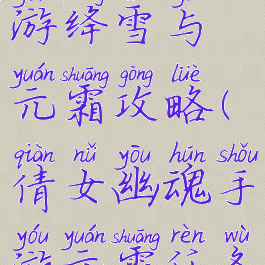 游绛雪与
yuán shuāng gōng lüè
元霜攻略(
qiàn nǚ yōu hún shǒu
倩女幽魂手
yóu yuán shuāng rèn wù